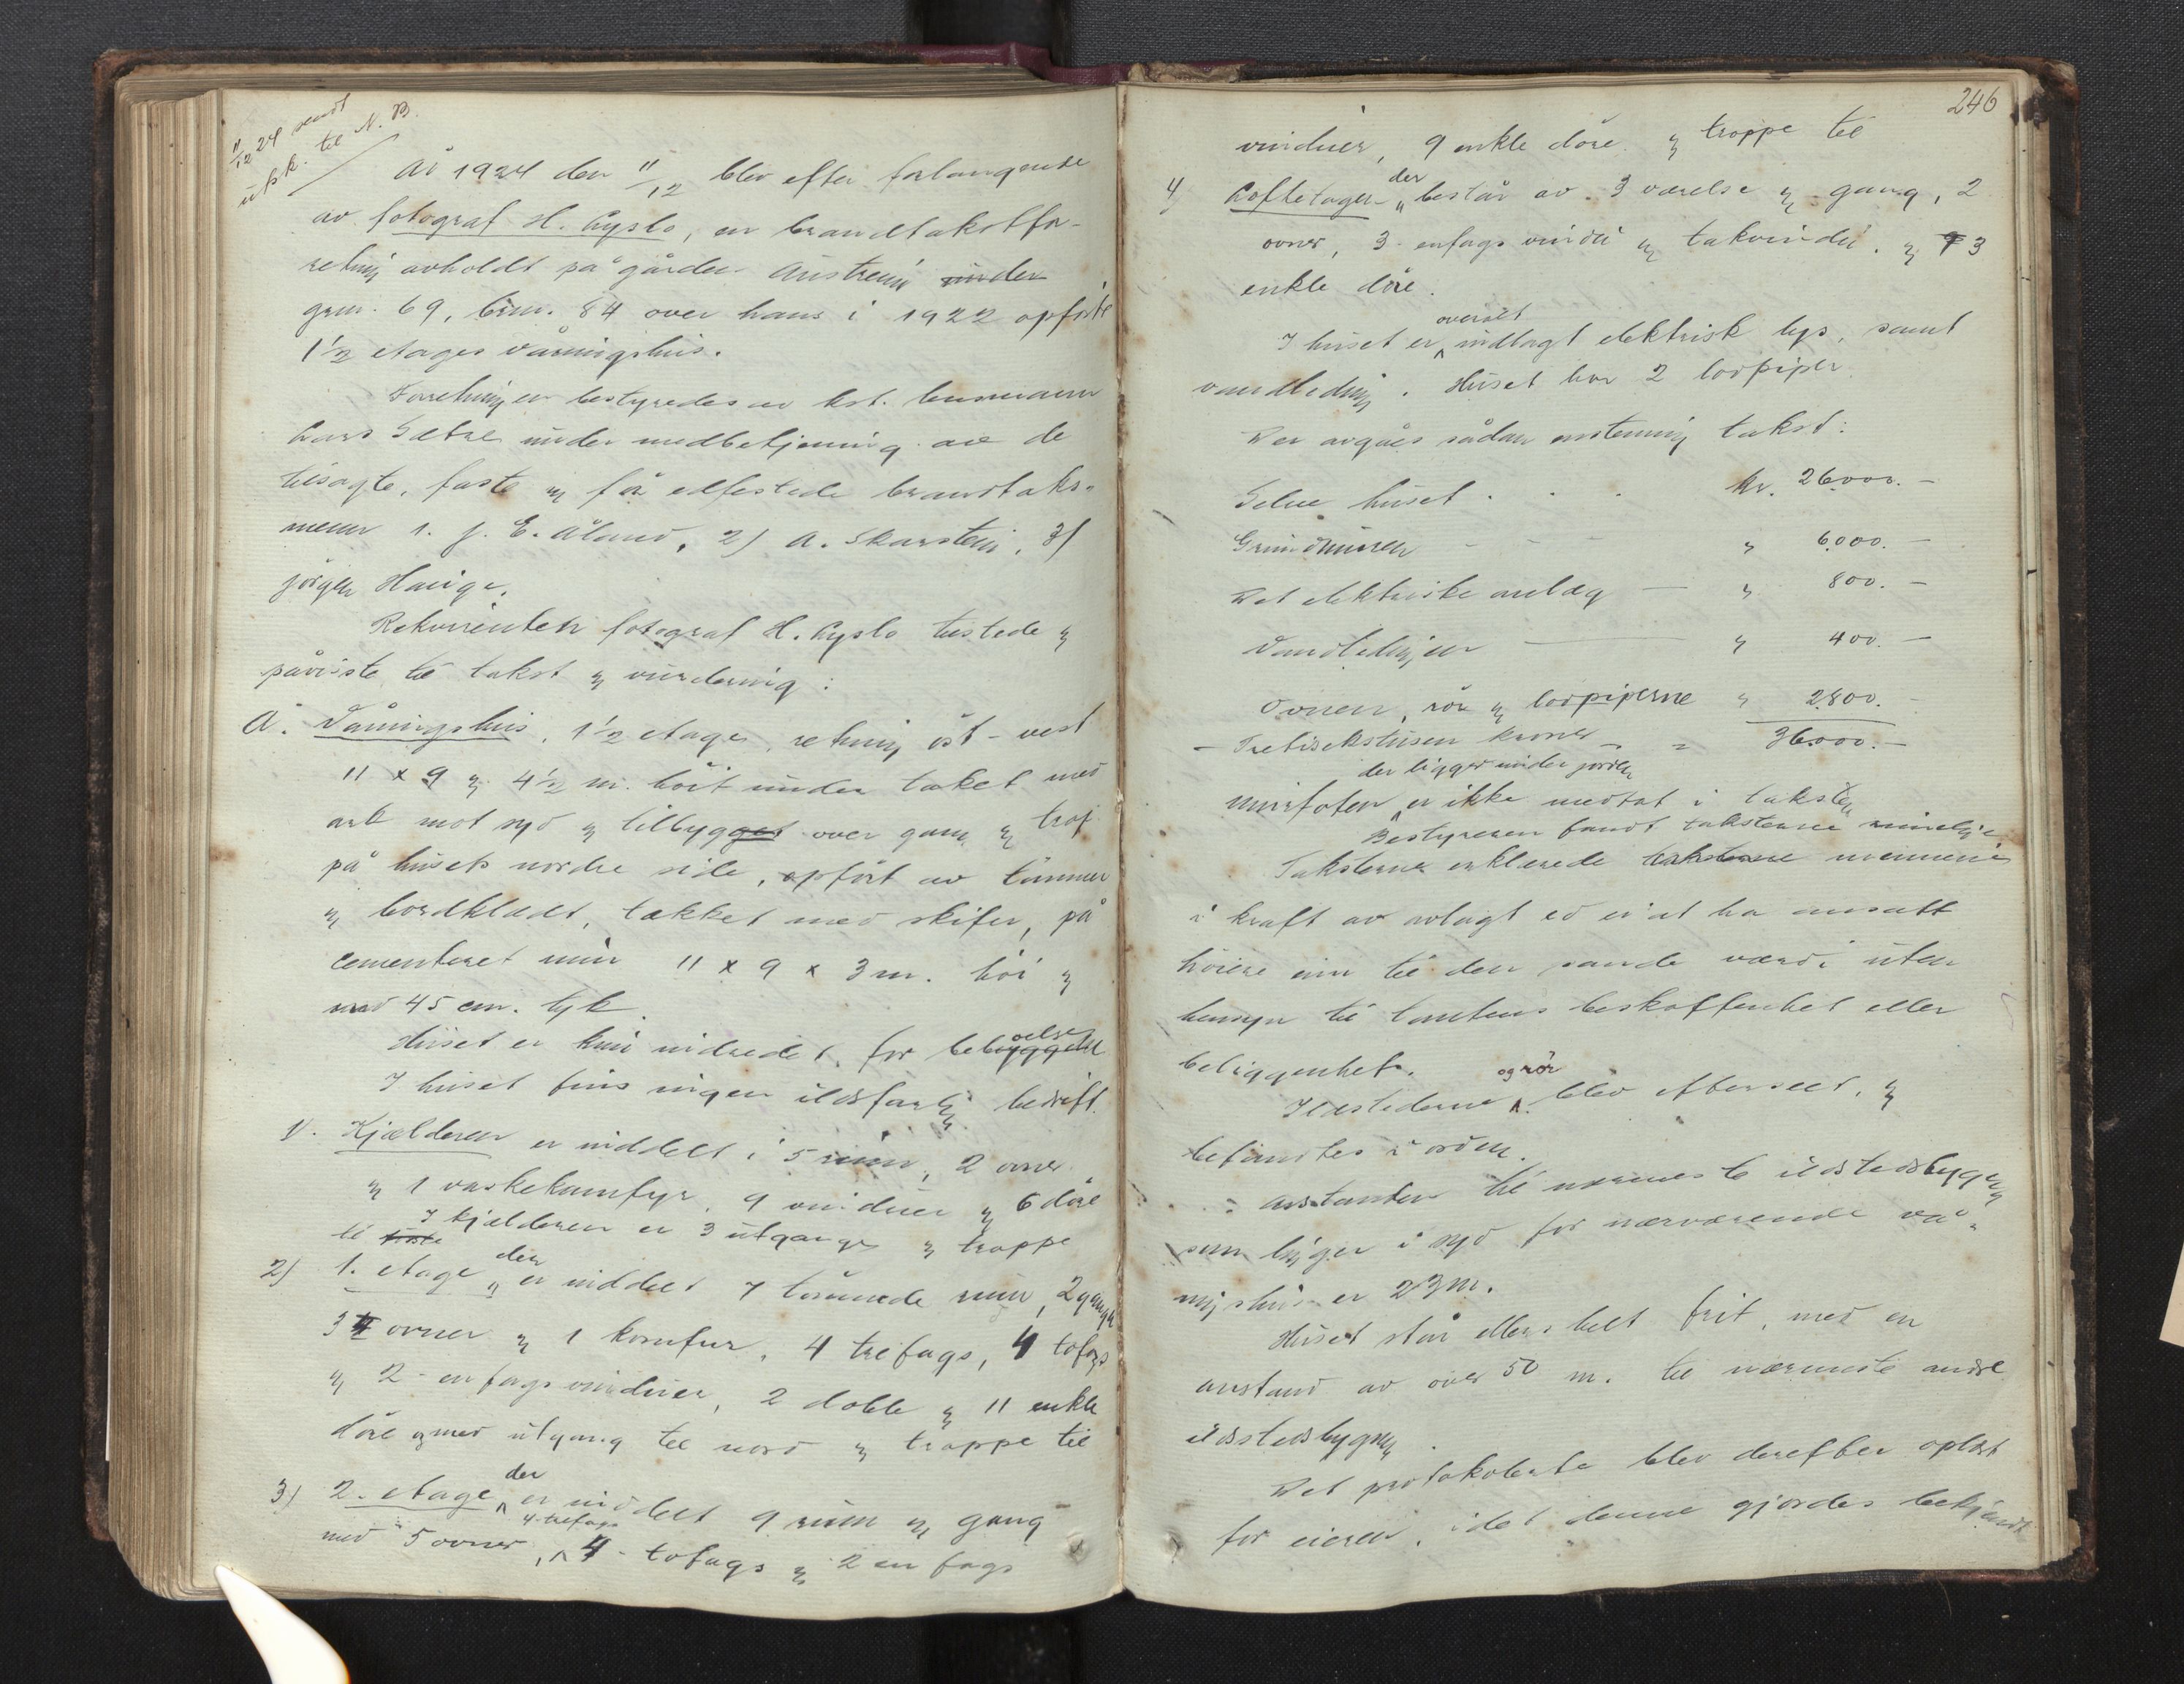 11/12 24 sendt
utsk. til N. B.
År 1924 den 11/12 blev efter forlangende
av fotograf H. Lyslo, en brandtakstfor-
retning avholdt på gården Austreim under
grm. 69, brm. 84 over hans i 1922 opførte
1½ etages våningshus.
Forretningen bestyredes av kst. lensmann
Lars Sætre under medbetjening av de
tilsagte, faste og før edfestede brandtaks-
menn 1. J. E. Åland, 2) A. Skarstein, 3)
Jørgen Hauge.
Rekvirenten fotograf H. Lyslo tilstede og
påviste til takst og vurdering:
A. Våningshus, 1½ etage, retning øst-vest
11 x 9 og 4½ m. høit under taket med
ark mot syd og tilbygget over gang og trap
på husets nordre side, opført av tømmer
og bordklædt, tækket med skifer, på
cementeret mur 11 x 9 x 3 m. høi og
med 45 cm. tyk.
Huset er kun indredet for beboelse
I huset fins ingen ildsfarlig bedrift.
1). Kjælderen er inddelt i 5 rum, 2 ovner
og 1 vaskekomfyr, 9 vinduer og 6 døre
I kjælderen er 3 utgange og trappe
til
2) 1. etage der er inddelt 7 rum, 2 gange
3 4 ovner og 1 komfur, 4 trefags, 4 tofags
og 2 - enfags vinduer, 2 doble og 11 enkle
døre og med utgang til nord og trappe til
3) 2. etage der er inddelt 9 rum og gang
med 5 ovner, 4 trefags 4 - tofags og 2 en fags
246
vinduer, 9 enkle døre og trappe til
4) Loftetagen der består av 3 værelse og gang, 2
ovner, 3 enfags vindu og takvindu. og 3
enkle døre.
I huset er overalt indlagt elektrisk lys, samt
vandledning. Huset har 2 lodpiper
Der avgåes sådan enstemmig takst:
Selve huset . . . kr. 26000. -
Grundmuren - - - " 6000. -
Det elektriske anlæg - " 800. -
Vandledningen - " 400. -
Ovnen, rør og lodpiperne " 2800. -
- Trettisekstusen kroner - = 36000. -
Murfoten der ligger under jorden er ikke medtat i taksten
Bestyreren fandt taksterne rimelige
Taksterne erklærede mennene
i kraft av avlagt ed ei at ha ansatt
høiere enn til den sande værdi uten
hensyn til tomtens beskaffenhet eller
beliggenhet.
Ildstederne og rør blev efterseet, og
befandtes i orden.
Avstanden til nærmeste ildstedsbygning
som ligger i syd for nærværende vå-
ningshus er 23 m.
Huset står ellers helt frit, med en
avstand av over 50 m. til nærmeste andre
ildstedsbygning.
Det protokolerte blev derefter oplæst
for eieren, idet denne gjordes bekjendt